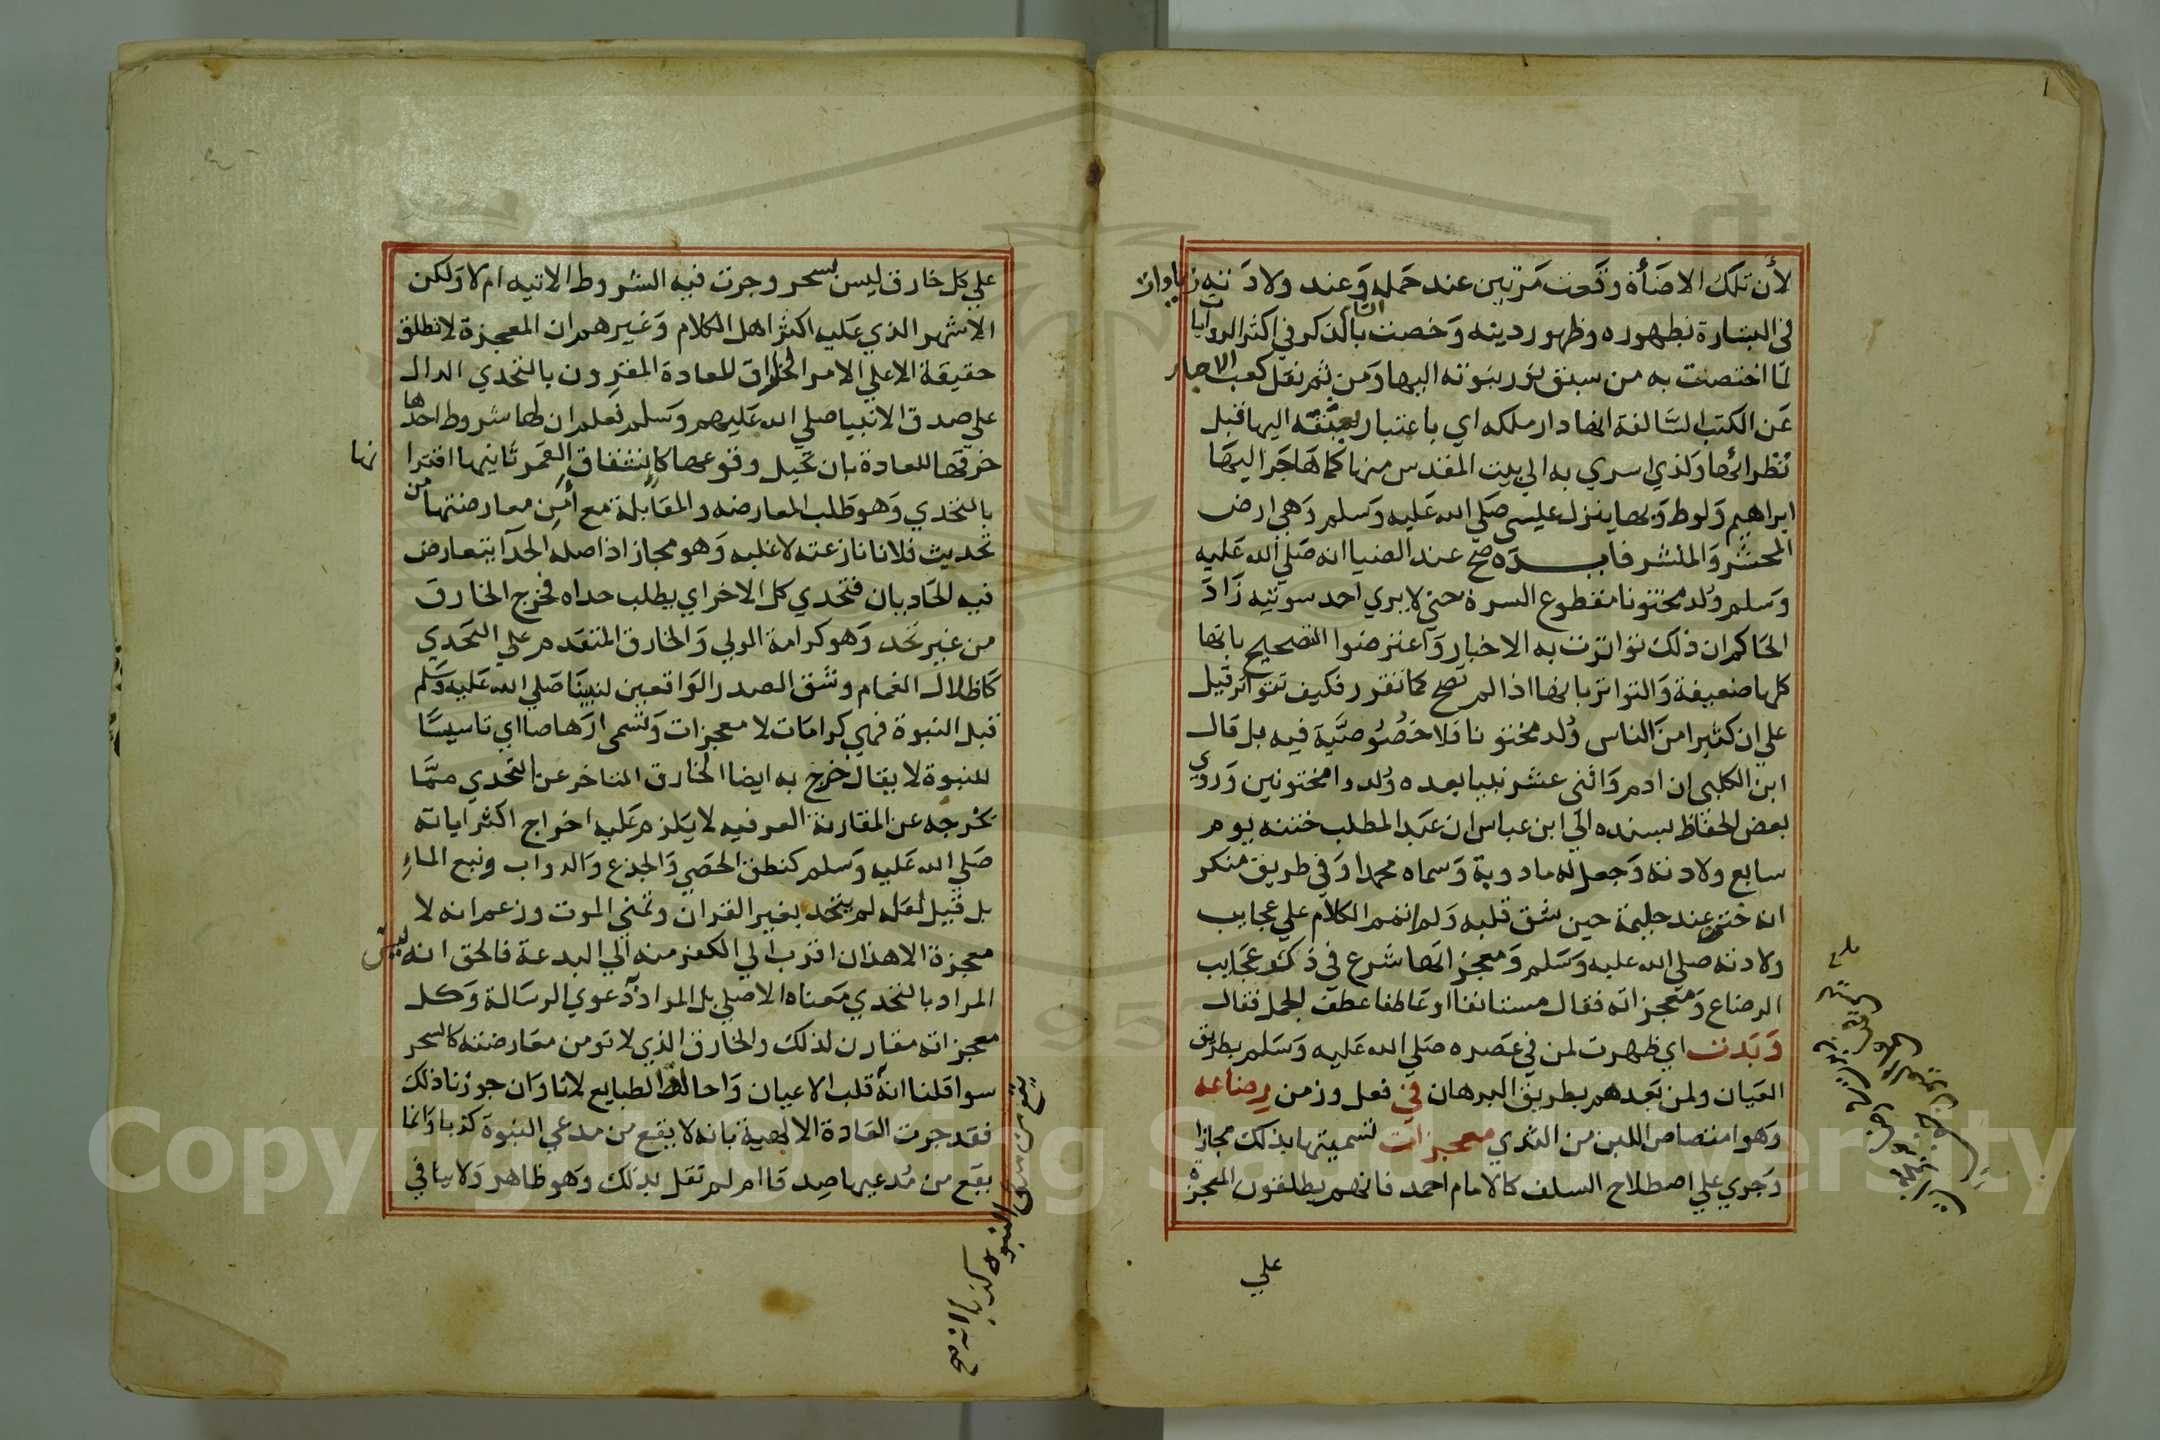 لأن تلك الاضأة وقعت مرتين عند حمله وعند ولادته زيادة
في البشارة بظهوره وظهور دينه وخصت الشام بالذكر في اكثر الروايات
لما اختصت به من سبق نور نبوته اليها ومن ثم نقل كعب الاحبار
عن الكتب السالفة انها دار ملكه اي باعتبار اليها قبل
نظرائها ولذي اسري به الي بيت المقدس منها كما هاجر اليها
ابراهيم ولوط وبها ينزل عيسي صلي الله عليه وسلم وهي ارض
المحشر والمنشر فايده صح عند الضيا انه صلي الله عليه
وسلم ولد مختونا مقطوع السرة حتي لا يري احد سوئته زاد
الحاكم ان ذلك تواترت به الاخبار واعترضوا التصحيح بانها
كلها ضعيفة والتواتر بانها اذا لم تصح كما تقرر فكيف تتواتر قيل
علي ان كثيرا من الناس ولد مختونا فلا خصوصية فيه بل قال
ابن الكلبي ان ادم واثني عشر نبيا بعده ولدوا مختونين وروي
بعض الحفاظ بسنده الي ابن عباس ان عبد المطلب ختنه يوم
سابع ولادته وجعل له مادوبة وسماه محمدا وفي طريق منكر
انه ختن عند حليمة حين شق قلبه ولما تمم الكلام علي عجايب
ولادته صلي الله عليه وسلم ومعجزاتها شرع في ذكر عجايب
الرضاع ومعجزاته فقال مستانفا او عاطفا عطف الجمل فقال
وبدت اي ظهرت لمن في عصره صلي الله عليه وسلم بطريق
العيان ولمن بعدهم بطريق البرهان في فعل وزمن رضاعه
وهو امتصاص اللبن من الثدي معجزات تسميتها بذلك مجازا
وجري علي اصطلاح السلف كالامام احمد فانهم يطلقون المعجزة
علي
علي كل خارق ليس بسحر وجرت فيه الشروط الاتيه ام لا ولكن
الاشهر الذي عليه اكثر اهل الكلام وغيرهم ان المعجزة لا تطلق
حقيقة الا علي الامر الخارق للعادة المقرون بالتحدي الدال
علي صدق الانبيا صلي الله عليهم وسلم فعلم ان لها شروط احدها
خرقها للعادة بان تحيل وقوعها كانشقاق القمر ثانيها اقترانها
بالتحدي وهو طلب المعارضه والمقابلة مع أمن من معارضتها
تحديت فلانا نازعته لاغلبه وهو مجاز اذ اصله الحدا يتعارض
فيه الحاديان فتحدي كل الاخر اي يطلب حداه فخرج الخارق
من غير تحد وهو كرامة الولي والخارق المتقدم علي التحدي
كاظلال الغمام وشق الصدر الواقعين لنبينا صلي الله عليه وسلم
قبل النبوة فهي كرامات لا معجزات وتسمي ارهاصا اي تاسيسا
للنبوة لا يقال خرج به ايضا الخارق المتاخر عن التحدي مما
يخرجه عن المقارنة العرفيه لا يلزم عليه اخراج اكثر اياته
صلي الله عليه وسلم كنطق الحصي والجذع والدواب ونبع الماء
بل قيل لعله لم يتحد بغير القران وتمني الموت وزعم انه لا
معجزة الا هذان اقرب الي الكفر منه الي البدعة فالحق انه ليس
المراد بالتحدي معناه الاصلي بل المراد دعوي الرسالة وكل
معجزاته مقارن لذلك والخارق الذي لا تومن معارضته كالسحر
سوا قلنا انه قلب الاعيان واحالة الطبايع لانا وان جوزنا ذلك
فقد جرت العادة الالهية بانه لا يقع من مدعي النبوة كذبا وانما
يقع من مدعيها صدقا ام لم نقل بذلك وهو ظاهر ولا ينافي
Copyright © King Saud University